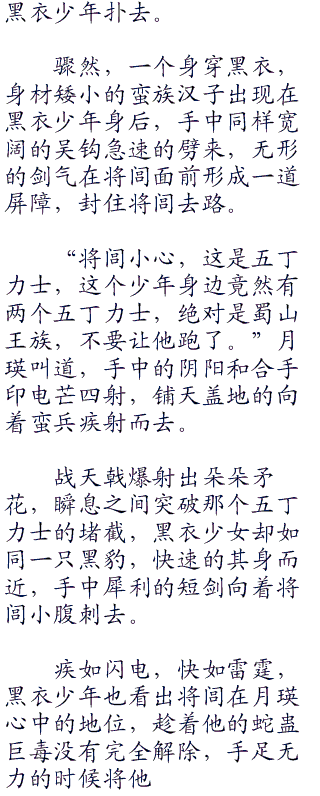 黑衣少年扑去。
骤然，一个身穿黑衣，
身材矮小的蛮族汉子出现在
黑衣少年身后，手中同样宽
阔的吴钩急速的劈来，无形
的剑气在将闾面前形成一道
屏障，封住将闾去路。
“将闾小心，这是五丁
力士，这个少年身边竟然有
两个五丁力士，绝对是蜀山
王族，不要让他跑了。”月
瑛叫道，手中的阴阳和合手
印电芒四射，铺天盖地的向
着蛮兵疾射而去。
战天戟爆射出朵朵矛
花，瞬息之间突破那个五丁
力士的堵截，黑衣少女却如
同一只黑豹，快速的其身而
近，手中犀利的短剑向着将
闾小腹刺去。
疾如闪电，快如雷霆，
黑衣少年也看出将闾在月瑛
心中的地位，趁着他的蛇蛊
巨毒没有完全解除，手足无
力的时候将他